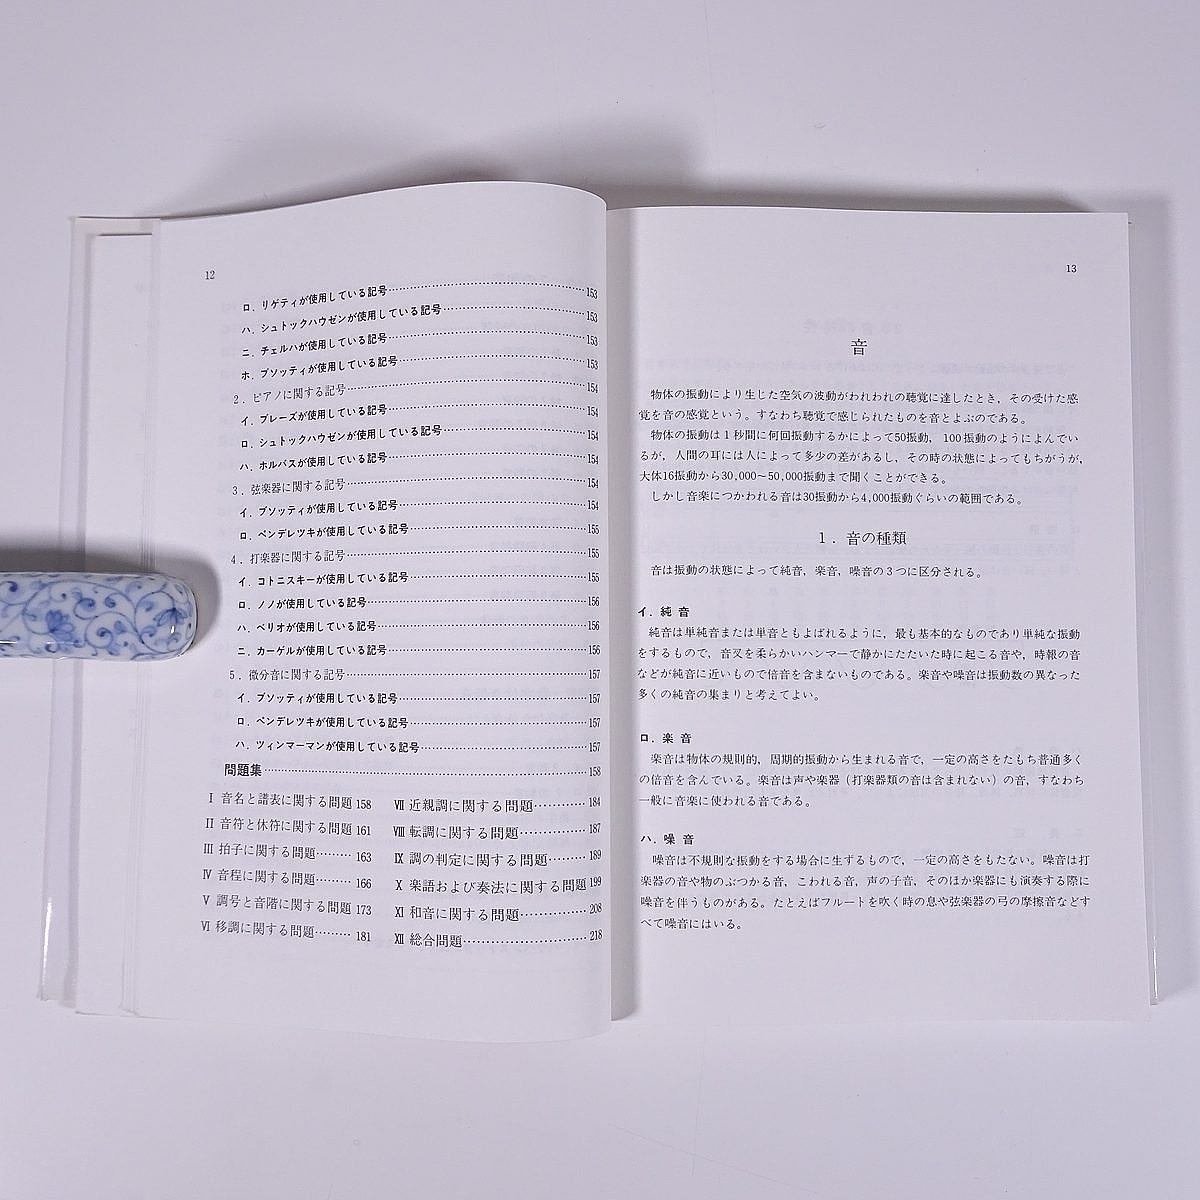 12
ロ．リゲティが使用している記号……153
ハ．シュトックハウゼンが使用している記号……153
ニ．チェルハが使用している記号……153
ホ．ブソッティが使用している記号……153
2．ピアノに関する記号……154
イ．ブレーズが使用している記号……154
ロ．シュトックハウゼンが使用している記号……154
ハ．ホルパスが使用している記号……154
3．弦楽器に関する記号……154
イ．ブソッティが使用している記号……154
ロ．ペンデレツキが使用している記号……155
4．打楽器に関する記号……155
イ．コトニスキーが使用している記号……155
ロ．ノノが使用している記号……156
ハ．ベリオが使用している記号……156
ニ．カーゲルが使用している記号……156
5．微分音に関する記号……157
イ．ブソッティが使用している記号……157
ロ．ペンデレツキが使用している記号……157
ハ．ツィンマーマンが使用している記号……157
問題集……158
Ⅰ 音名と譜表に関する問題 158
Ⅱ 音符と休符に関する問題 161
Ⅲ 拍子に関する問題……163
Ⅳ 音程に関する問題……166
Ⅴ 調号と音階に関する問題 173
Ⅵ 移調に関する問題……181
Ⅶ 近親調に関する問題……184
Ⅷ 転調に関する問題……187
Ⅸ 調の判定に関する問題……189
Ⅹ 楽語および奏法に関する問題 199
Ⅺ 和音に関する問題……208
Ⅻ 総合問題……218
13
音
物体の振動により生じた空気の波動がわれわれの聴覚に達したとき，その受けた感
覚を音の感覚という。すなわち聴覚で感じられたものを音とよぶのである。
物体の振動は1秒間に何回振動するかによって50振動，100振動のようによんでい
るが，人間の耳には人によって多少の差があるし，その時の状態によってもちがうが，
大体16振動から30,000〜50,000振動まで聞くことができる。
しかし音楽につかわれる音は30振動から4,000振動ぐらいの範囲である。
1．音の種類
音は振動の状態によって純音，楽音，噪音の3つに区分される。
イ．純 音
純音は単純音または単音ともよばれるように，最も基本的なものであり単純な振動
をするもので，音叉を柔らかいハンマーで静かにたたいた時に起こる音や，時報の音
などが純音に近いもので倍音を含まないものである。楽音や噪音は振動数の異なった
多くの純音の集まりと考えてよい。
ロ．楽 音
楽音は物体の規則的，周期的振動から生まれる音で，一定の高さをたもち普通多く
の倍音を含んでいる。楽音は声や楽器（打楽器類の音は含まれない）の音，すなわち
一般に音楽に使われる音である。
ハ．噪 音
噪音は不規則な振動をする場合に生ずるもので，一定の高さをもたない。噪音は打
楽器の音や物のぶつかる音，こわれる音，声の子音，そのほか楽器にも演奏する際に
噪音を伴うものがある。たとえばフルートを吹く時の息や弦楽器の弓の摩擦音などす
べて噪音にはいる。